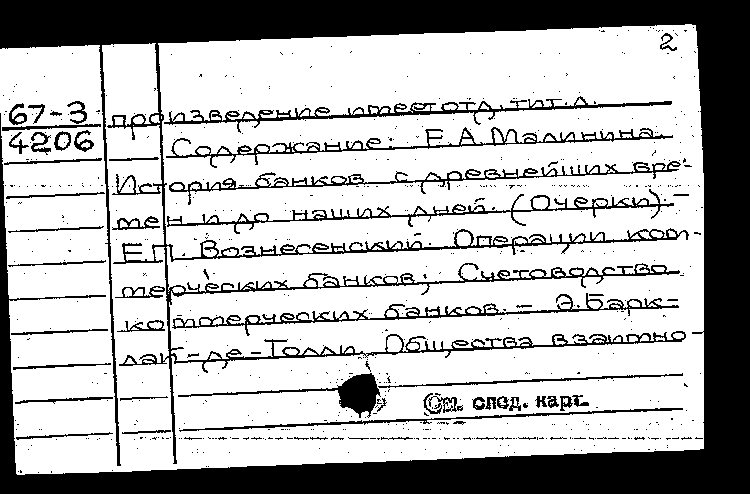 2
67-3
4206
произведение имеет отд. тит. л.
Содержание: Е.А. Малинина.
История банков с древнейших вре-
мен и до наших дней. (Очерки). -
Е.П. Вознесенский. Операции ком-
мерческих банков; Счетоводство
коммерческих банков. - Э. Барк-
лай-де-Толли. Общества взаимно-
См. спец. карт.